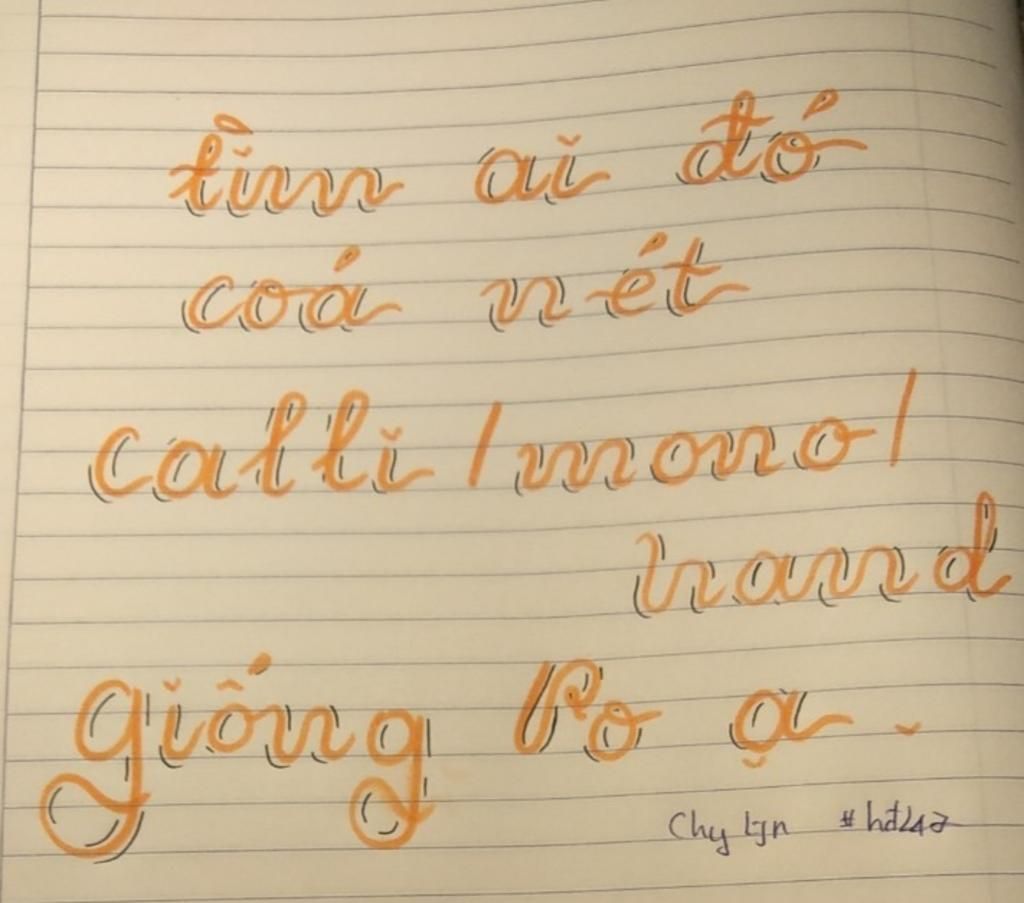 tìm ai đó
coá nét
calli / mono /
hand
giống Po ạ.
Chy Lyn #hd247